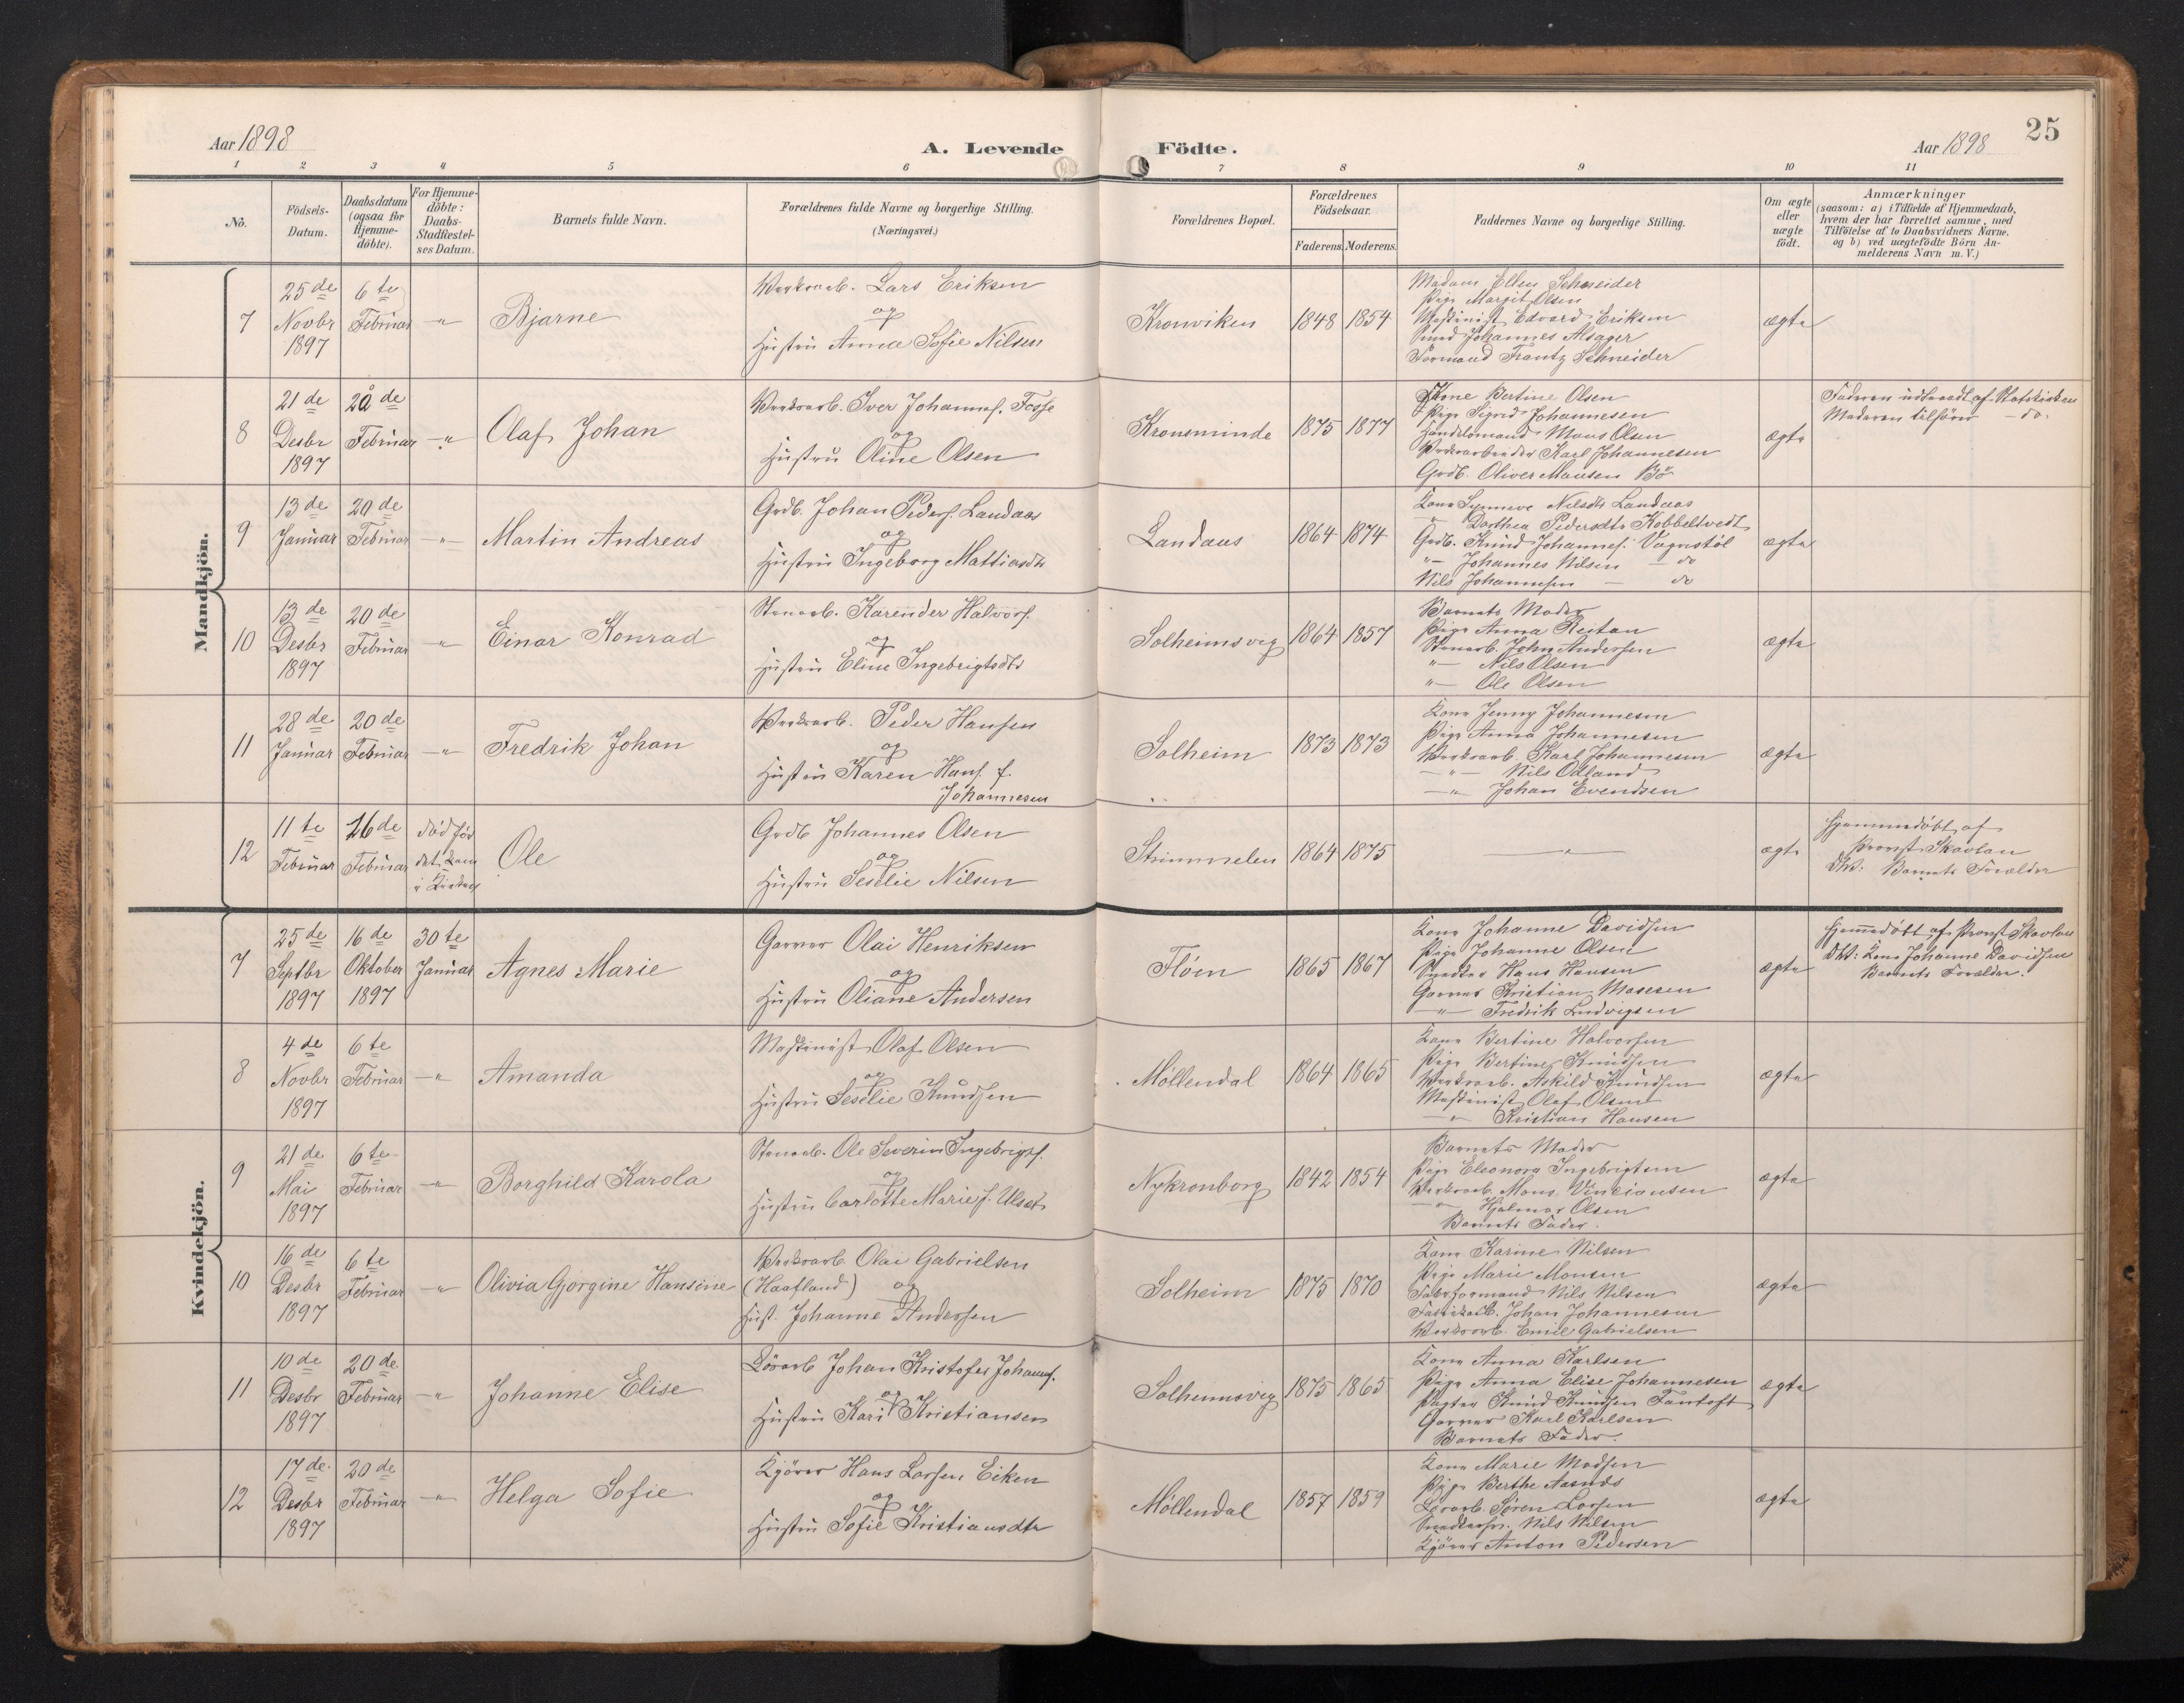 Aar 1898
A. Levende Födte.
Aar 1898
25
1 2 3 4 5 6 7 8 9 10 11
No.
Födsels-Datum.
Daabsdatum (ogsaa for Hjemme-döbte).
For Hjemme-döbte: Daabs-Stadfæstel-ses Datum.
Barnets fulde Navn.
Forældrenes fulde Navne og borgerlige Stilling.
(Næringsvei.)
Forældrenes Bopæl.
Forældrenes Födselsaar.
Faderens. Moderens.
Faddernes Navne og borgerlige Stilling.
Om ægte eller uægte födt.
Anmærkninger
(saasom: a) i Tilfælde af Hjemmedaab,
hvem der har forrettet samme, med
Tilföielse af to Daabsvidners Navne.
og b) ved uægtefödte Börn An-
melderens Navn m. V.)
Mandkjön.
7
25de Novbr 1897
6te Februar
-"-
Bjarne
Værksarb. Lars Eriksen
og
Hustru Anna Sofie Nilsen
Kronviken
1848 1854
Madam Ellen Schneider
Pige Margit Olsen
Maskinist Edvard Eriksen
Smed Johannes Alsager
Formand Frantz Schneider
ægte
8
21de Desbr 1897
20de Februar
-"-
Olaf Johan
Værksarb. Iver Johannes. Fosse
og
Hustru Oline Olsen
Kronsminde
1875 1877
Kone Bertine Olsen
Pige Sigrid Johannesen
Handelsmand Mons Olsen
Værksarbeider Karl Johannesen
Grdb. Oliver Monsen Bö
ægte
Faderen udtraadt af Statskirken
Moderen tilhører -do-
9
13de Januar
20de Februar
-"-
Martin Andreas
Grdb. Johan Peders. Landaas
og
Hustru Ingeborg Mattiasdtr
Landaas
1864 1874
Kone Synneve Nilsdtr Landaas
" Dorthea Pedersdtr Kobbeltvedt
Grdb. Knud Johannes. Vognstöl
"- Johannes Nilsen - do
Nils Johannesen - do
ægte
10
13de Desbr 1897
20de Februar
-"-
Einar Konrad
Stenarb. Karender Halvors.
og
Hustru Eline Ingebrigtsdtr
Solheimsvig
1864 1857
Barnets Moder
Pige Anna Reitan
Stenarb. John Andersen
"- Nils Olsen
"- Ole Olsen
ægte
11
28de Januar
20de Februar
-"-
Fredrik Johan
Værksarb. Peder Hansen
og
Hustru Karen Hans. f.
Johannesen
Solheim
1873 1873
Kone Jenny Johannesen
Pige Anna Johannesen
Værksarb. Karl Johannesen
-"- Nils Odland
-"- Johan Evensen
ægte
12
11te Februar
26de Februar
död för det kom i Kirken
Ole
Grdb Johannes Olsen
og
Hustru Seselie Nilsen
Strimmelen
1864 1875
-"-
ægte
Hjemmedöbt af
Provst Skavlan
DV: Barnets Forældre
Kvindekjön.
7
25de Septbr 1897
16de Oktober 1897
30te Januar
Agnes Marie
Garver Olai Henriksen
og
Hustru Oliane Andersen
Flöen
1865 1867
Kone Johanne Davidsen
Pige Johanne Olsen
Snedker Hans Hansen
Garver Kristian Mosesen
-"- Fredrik Ludvigsen
ægte
Hjemmedöbt af Provst Skavlan
DV: Kone Johanne Davidsen
Barnets Forældre.
8
4de Novbr 1897
6te Februar
-"-
Amanda
Maskinist Olaf Olsen
og
Hustru Seselie Knudsen
Möllendal
1864 1865
Kone Bertine Halvorsen
Pige Bertine Knudsen
Værksarb. Askild Knudsen
Maskinist Olaf Olsen
-"- Kristian Hansen
ægte
9
21de Mai 1897
6te Februar
-"-
Borghild Karola
Stenarb. Ole Severin Ingebrigts.
og
Hustru Carlotte Marie f. Ulset
Nykronborg
1842 1854
Barnets Moder
Pige Eleonora Ingebrigtsen
Værksarb. Mons Vinciansen
-"- Hjalmar Olsen
Barnets Fader.
ægte
10
16de Desbr 1897
6te Februar
-"-
Olivia Gjorgine Hansine
Værksarb. Olai Gabrielsen
(Haafland) og
Hust. Johanne Andersen
Solheim
1875 1870
Kone Karine Nilsen
Pige Marie Monsen
Fabrformand Nils Nilsen
Fabrikarb. Johan Johannesen
Værksarb. Emil Gabrielsen
ægte
11
10de Desbr 1897
20de Februar
-"-
Johanne Elise
Lösarb Johan Kristofer Johanns.
og
Hustru Kari Kristiansen
Solheimsvig
1875 1865
Kone Anna Karlsen
Pige Anna Elise Johannesen
Pagter Knud Knudsen Fantoft
Garver Karl Karlsen
Barnets Fader.
ægte
12
17de Desbr 1897
20de Februar
-"-
Helga Sofie
Kjörer Hans Larsen Eiken
og
Hustru Sofie Kristiansdtr
Möllendal
1857 1859
Kone Marie Madsen
Pige Berthe Aasnes
Lösarb. Sören Larsen
Nils Nilsen
Kjörer Anton Pedersen
ægte